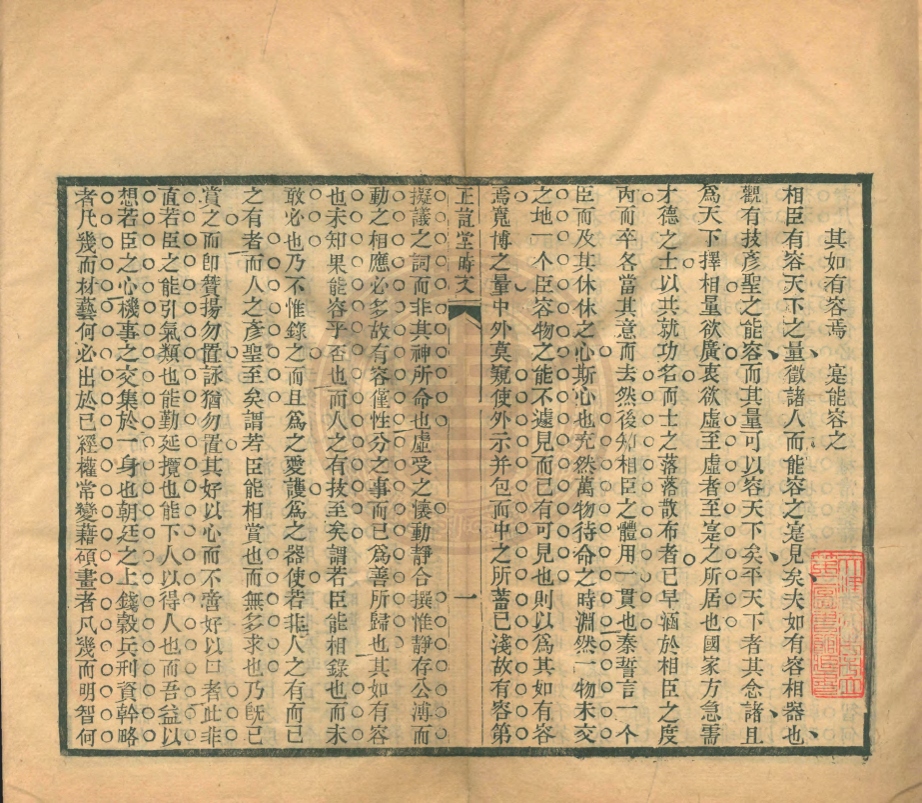 其如有容焉　寔能容之
相臣有容天下之量徵諸人而能容之寔見矣夫如有容相器也
觀有技彥聖之能容而其量可以容天下矣平天下者其念諸且
爲天下擇相量欲廣衷欲虛至虛者至寔之所居也國家方急需
才德之士以共就功名而士之落落散布者已早涵於相臣之度
內而卒各當其意而去然後知相臣之體用一貫也秦誓言一个
臣而及其休休之心斯心也充然萬物待命之時淵然一物未交
之地一个臣容物之能不遽見而已有可見也則以爲其如有容
焉寬博之量中外莫窺使外示并包而中之所蓄已淺故有容第
正誼堂時文
一
擬議之詞而非其神所命也虛受之懷動靜合撰惟靜存公溥而
動之相應必多故有容僅性分之事而已爲善所歸也其如有容
也未知果能容乎否也而人之有技至矣謂若臣能相錄也而未
敢必也乃不惟錄之而且爲之愛護爲之器使若非人之有而已
之有者而人之彥聖至矣謂若臣能相賞也而無多求也乃旣已
賞之而卽贊揚勿置詠猶勿置其好以心而不啻好以口者此非
直若臣之能引氣類也能勤延攬也能下人以得人也而吾益以
想若臣之心機事之交集於一身也朝廷之上錢穀兵刑資幹略
者凡幾而材藝何必出於已經權常變藉碩畫者凡幾而明智何